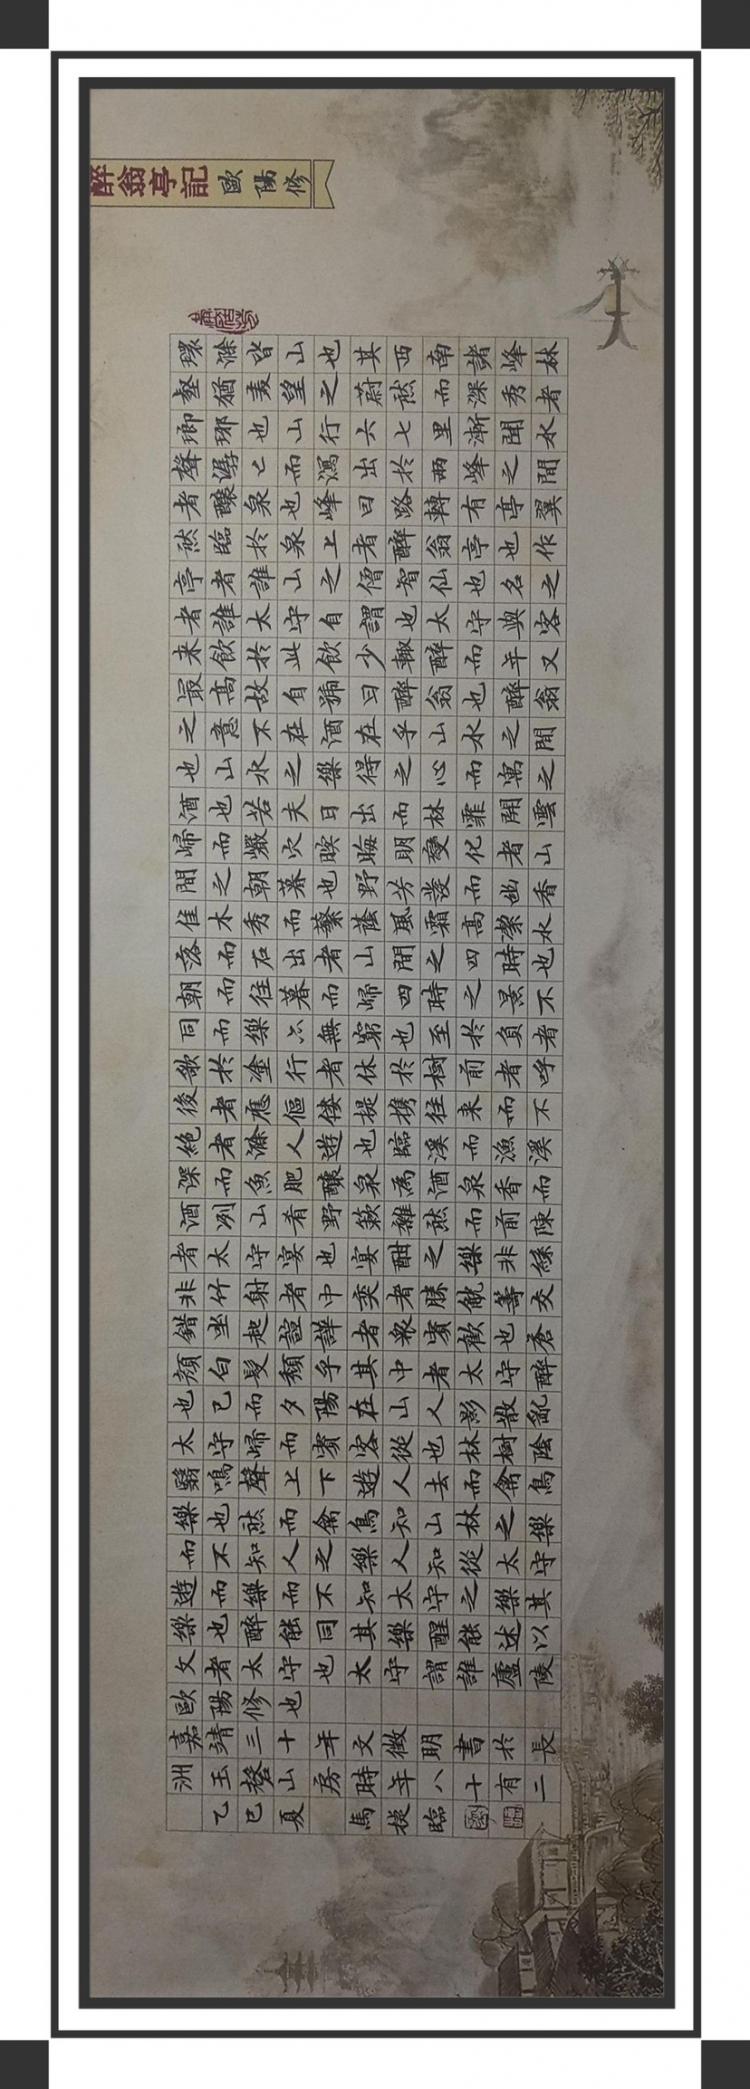 醉翁亭記 歐陽修
環滁皆山也其西南諸峰林
壑猶美望之蔚然而深秀者
瑯琊也山行六七里漸聞水
聲潺亡而瀉出於兩峰之間
者釀泉也峰曰路轉有亭翼
然臨於泉上者醉翁亭也作
亭者誰山之僧智仙也名之
者誰太守自謂也太守與客
來飲於此飲少輒醉而年又
最高故自號曰醉翁也醉翁
之意不在酒在乎山水之間
也山水之樂得之心而寓之
酒也若夫日出而林霏開雲
歸而巖穴暝晦明變化者山
間之朝暮也野芳發而幽香
佳木秀而蘩蔭風霜高潔水
落而石出者山間之四時也
朝而往暮而歸四時之景不
同而樂亦無窮也至於負者
歌於塗行者休於樹前者呼
後者應傴僂提攜往來而不
絕者滁人遊也臨溪而漁溪
深而魚肥釀泉為酒泉香而
酒洌山肴野蔌雜然而前陳
者太守宴也宴酣之樂非絲
非竹射者中奕者勝觥籌交
錯坐起諠譁者眾賓歡也蒼
顏白髮頹乎其中者太守醉
也已而夕陽在山人影散亂
太守歸而賓客從也林樹陰
翳鳴聲上下遊人去而禽鳥
樂也然而禽鳥知山林之樂
而不知人之樂人知從太守
遊而樂而不知太守之樂其
樂也醉能同其樂醒能述以
文者太守也太守謂誰廬陵
歐陽修也
嘉靖三十年文徵明書於長
洲玉磬山房時年八十有二
乙巳夏馬㨗臨